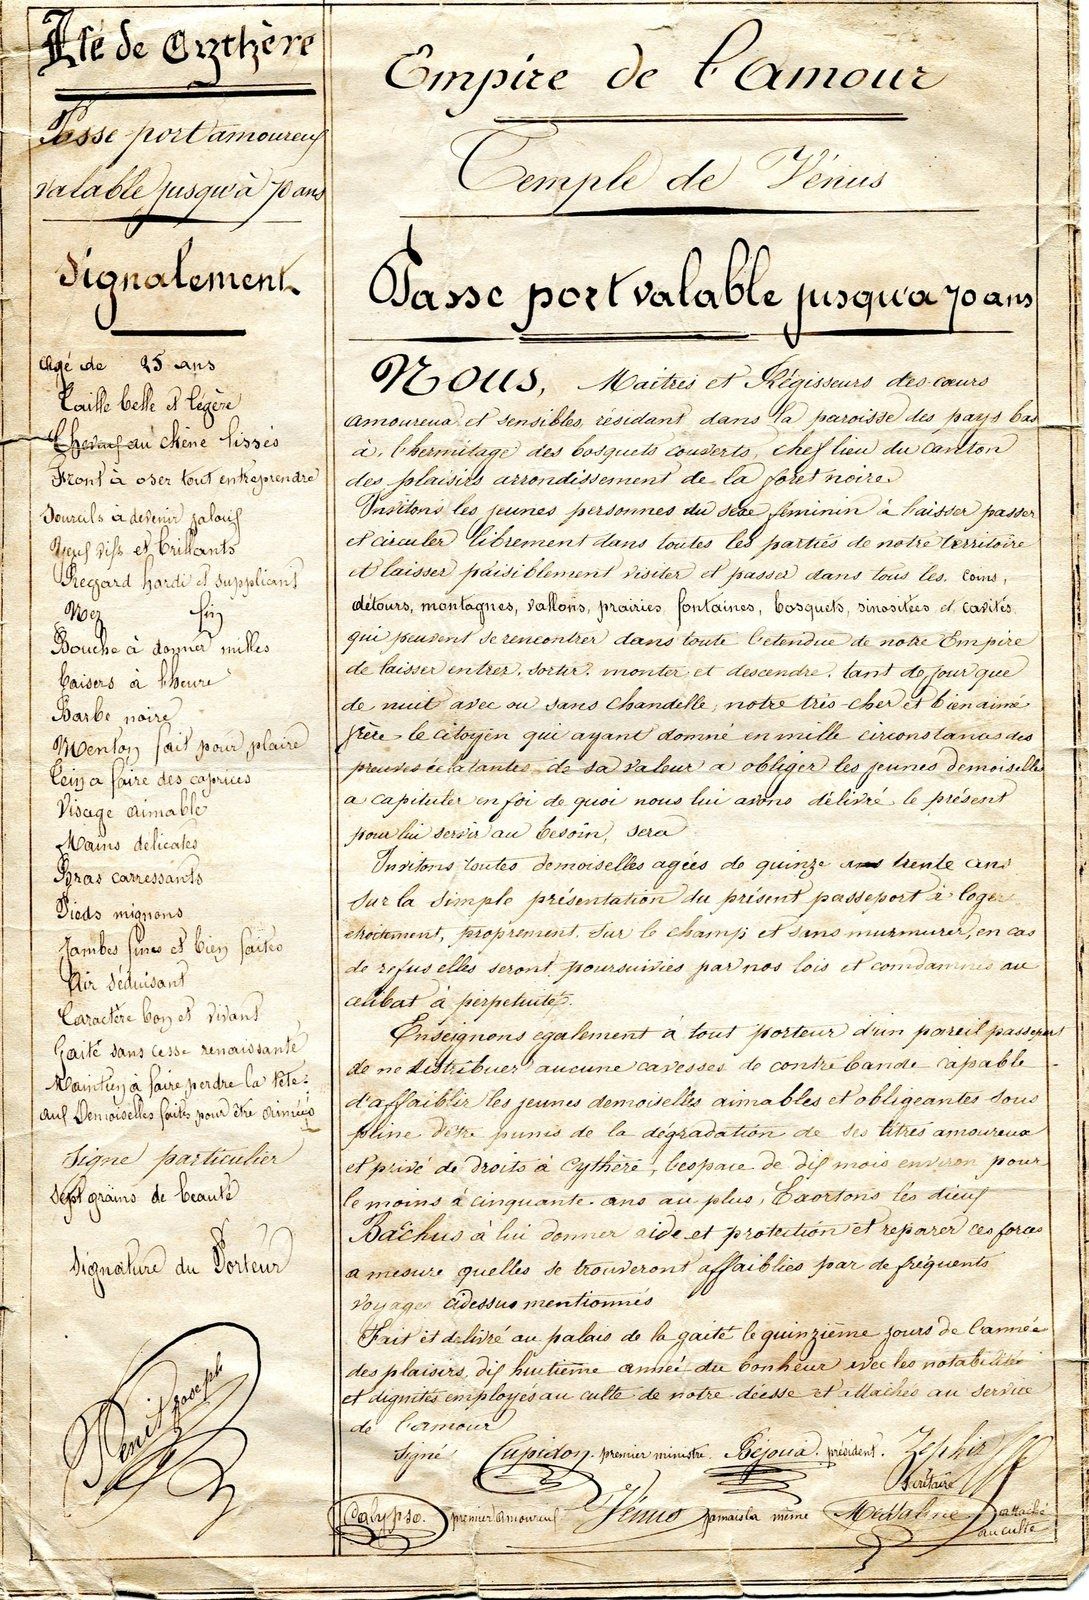 Ile de Cythère
Passe-port amoureux
valable jusqu'à 70 ans
Signalement
Agé de 25 ans
Taille belle et légère
Cheveux au chêne lissés
Front à oser tout entreprendre
Sourcils à devenir jaloux
Yeux vifs et brillants
Regard hardi et suppliant
Nez fin
Bouche à donner milles
baisers à l'heure
Barbe noire
Menton fait pour plaire
Tein a faire des caprices
Visage aimable
Mains délicates
Bras carressants
Pieds mignons
Jambes fines et bien faites
Air séduisant
Caractère bon et vivant
Gaité sans cesse renaissante
Maintien à faire perdre la tête
aux Demoiselles faites pour être aimées
Signe particulier
Sept grains de beauté
Signature du Porteur
Denis Joseph
Empire de l'amour
Temple de Vénus
Passe port valable jusqu'a 70 ans
Nous, Maitres et Régisseurs des cœurs
amoureux et sensibles, résidant dans la paroisse des pays bas
à l'hermitage des bosquets couverts, chef lieu du canton
des plaisirs arrondissement de la foret noire
Invitons les jeunes personnes du sexe feminin à laisser passer
et circuler librement dans toutes les parties de notre territoire
et laisser paisiblement visiter et passer dans tous les coins,
détours, montagnes, vallons, prairies, fontaines, bosquets, sinositées et cavités
qui peuvent se rencontrer dans toute l'etendue de notre Empire
de laisser entrer, sortir, monter et descendre, tant de jour que
de nuit avec ou sans chandelle, notre très cher et bien aimé
frère le citoyen qui ayant donné en mille circonstances des
preuves éclatantes de sa valeur a obliger les jeunes demoiselles
a capituler en foi de quoi nous lui avons délivré le présent
pour lui servir au besoin, sera
Invitons toutes demoiselles agées de quinze trente ans
sur la simple présentation du présent passeport à loger
étroitement, proprement, sur le champ et sans murmurer, en cas
de refus elles seront poursuivies par nos lois et condamnés au
célibat à perpétuité.
Enseignons egalement à tout porteur d'un pareil passeport
de ne distribuer aucune caresses de contrebande capable
d'affaiblir les jeunes demoiselles aimables et obligeantes sous
peine d'être punis de la dégradation de ses titres amoureux
et privé de droits à Cythère, l'espace de dix mois environ pour
le moins à cinquante ans au plus, Exortons les dieux
Bachus à lui donner aide et protection et reparer ces forces
a mesure quelles se trouveront affaiblies par de fréquents
voyages cidessus mentionnés
Fait et délivré au palais de la gaité le quinzième jours de l'année
des plaisirs, dix huitième année du bonheur avec les notabilité
et dignités employés au culte de notre déesse et attachés au service
de l'amour
Signé Cupidon, premier ministre Réjoui, président. Zéphir
Secrétaire
Calypso. premier amoureux Vénus jamais la même Madeleine attaché
au culte